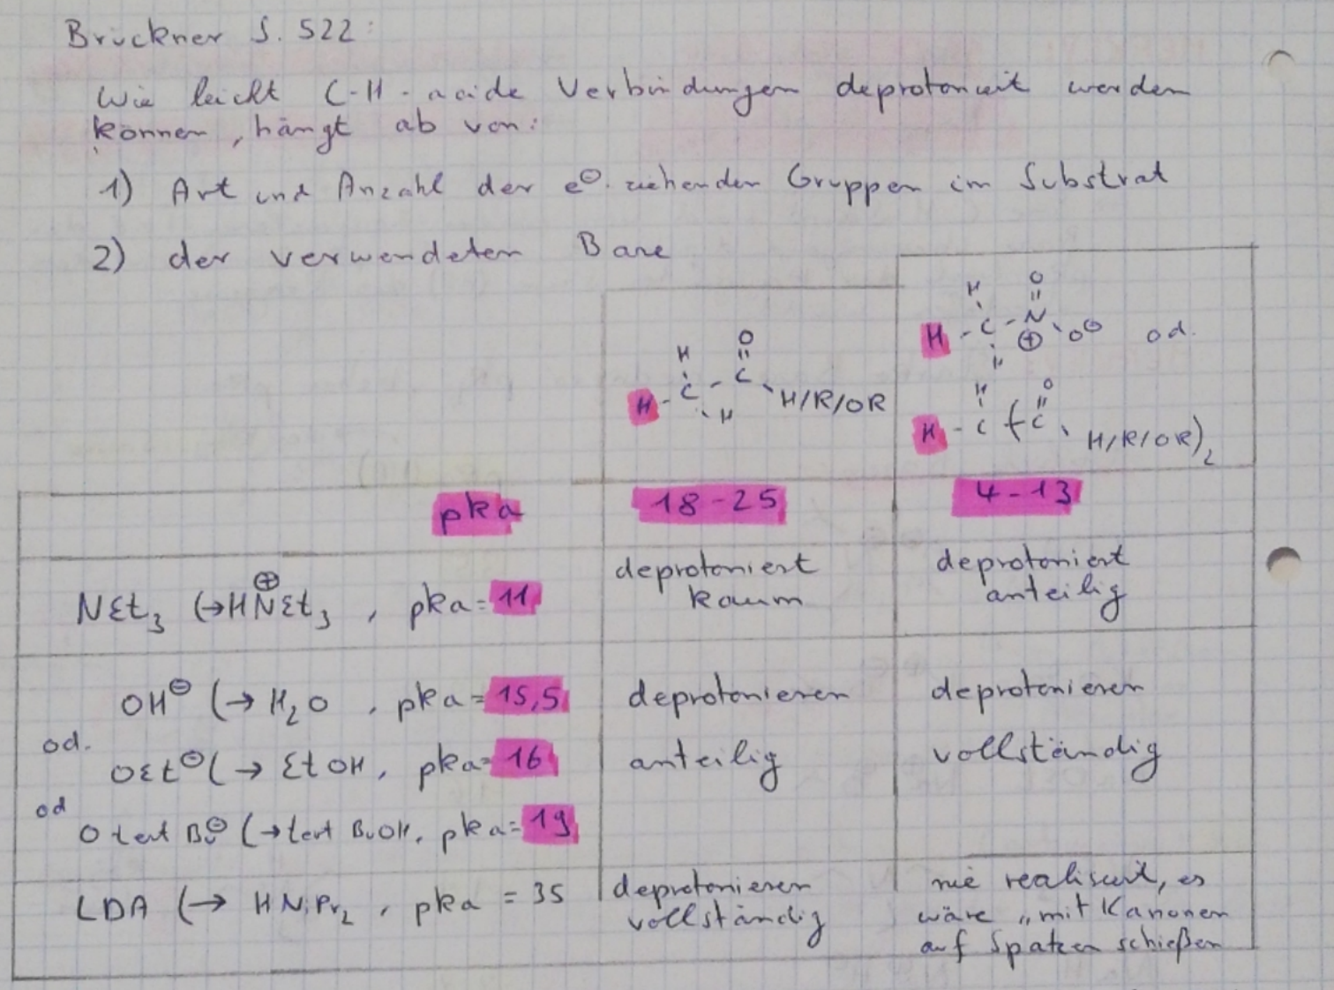 Brückner S. 522:
Wie leicht C-H-acide Verbindungen deprotoniert werden
können, hängt ab von:
1) Art und Anzahl der e⊖-ziehenden Gruppen im Substrat
2) der verwendeten Base
H H-C-H C=O H/R/OR
H H-C-H N⊕=O O⊖ od.
H H-C(-C=O H/R/OR)2
pka 18-25 4-13
NEt3 (→HN⊕Et3, pka=11 deprotoniert kaum deprotoniert anteilig
OH⊖ (→ H2O, pka=15,5 deprotonieren deprotonieren
od. OEt⊖(→ EtOH, pka=16 anteilig vollständig
od O tert Bu⊖ (→tert BuOH, pka=19
LDA (→ HNiPr2, pka = 35 deprotonieren vollständig nie realisiert, es wäre „mit Kanonen auf Spatzen schießen